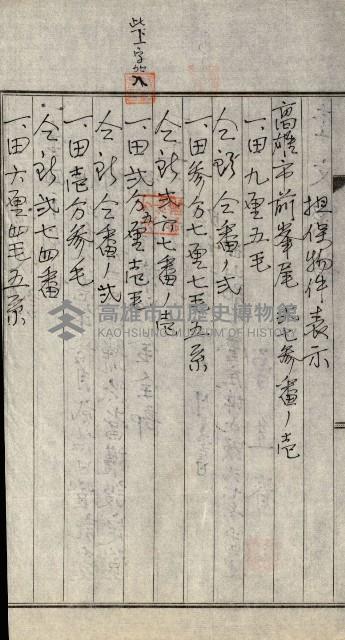 此上字加入
担保物件表示
高雄市前峯尾弐七参番ノ壱
一、田九厘五毛
仝所仝番ノ弐
一、田参分七厘七毛五糸
仝所弐六七番ノ壱
一、田弐分五厘壱毛
仝所仝番ノ弐
一、田壱分参毛
仝所弐七四番
一、田六厘四毛五糸
高雄市立歷史博物館
KAOHSIUNG MUSEUM OF HISTORY